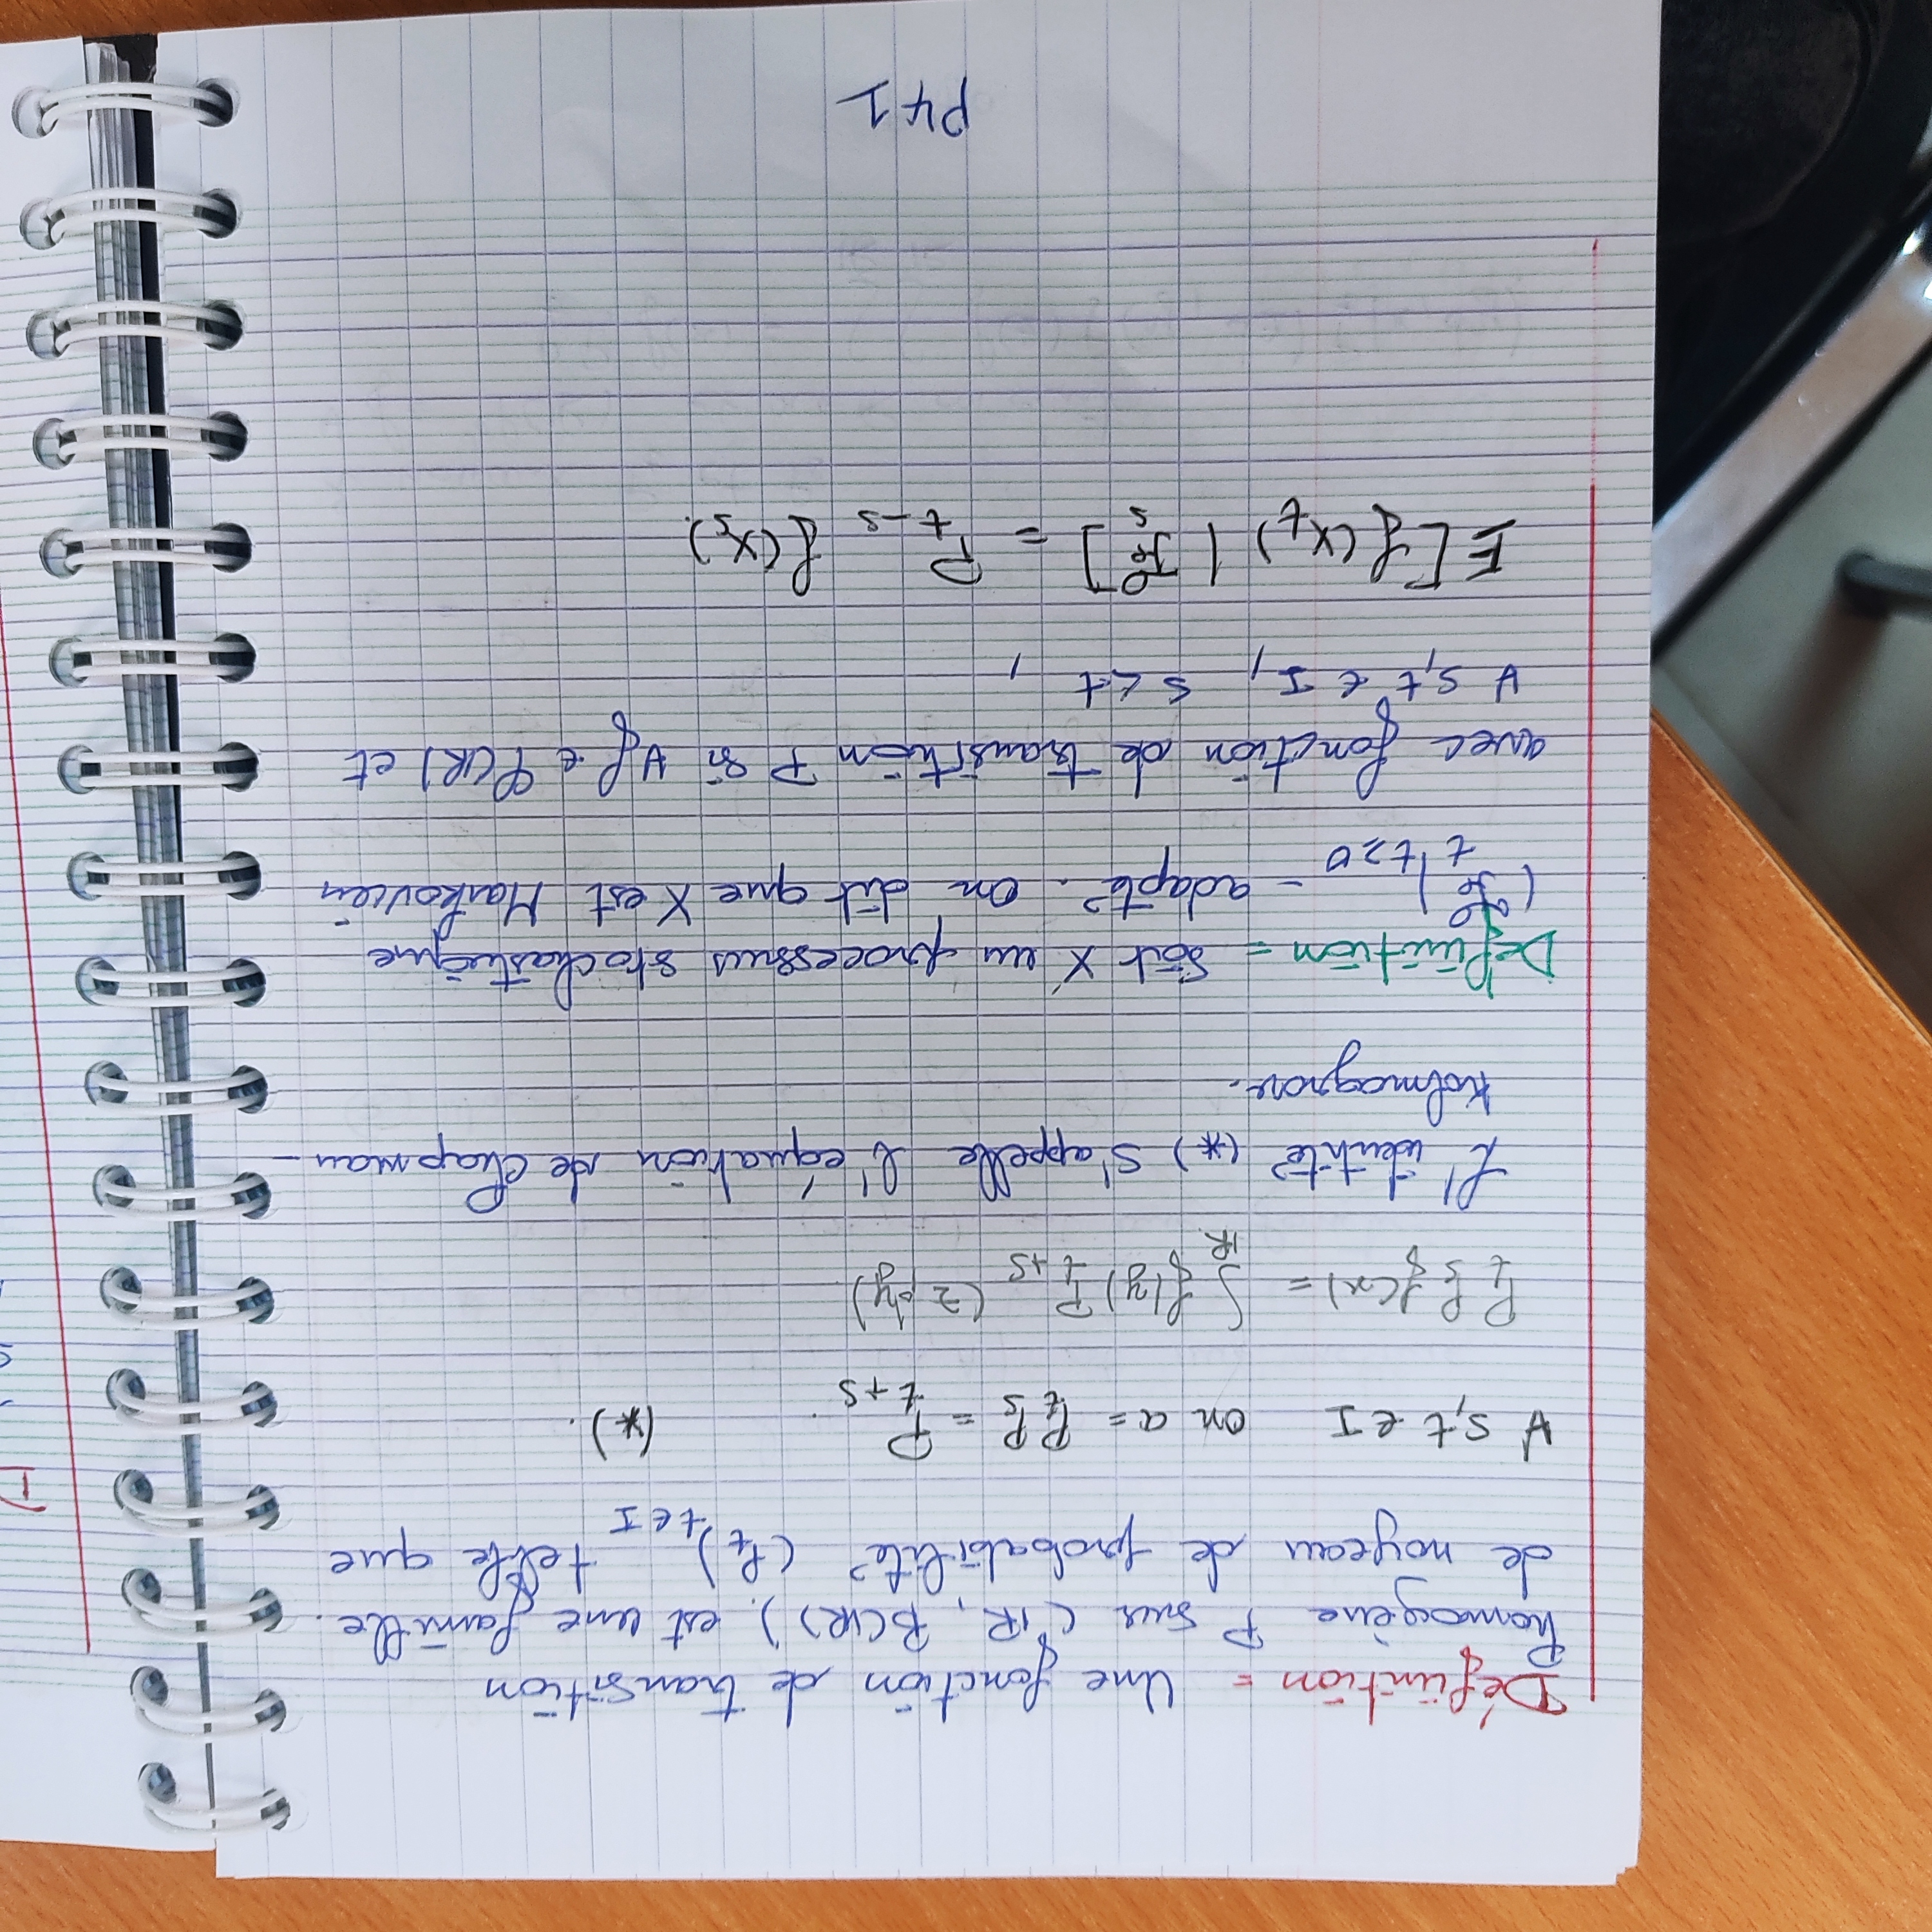 Définition = Une fonction de transition
homogène P sur (IR, B(IR)). est une famille.
de noyeau de probabilité (P_t)_{t∈I} telle que
∀ s,t ∈ I on a = P_t P_s = P_{t+s}. (*).
P_t P_s f(x) = ∫_{IR} f(y) P_{t+s} (z, dy)
L'identité (*) s'appelle l'équation de Chapman-
Kolmagrov.
Définition = Soit X un processus stochastique
(ℱ_t)_{t≥0} - adapté. On dit que X est Markovien
avec fonction de transition P si ∀ f ∈ φ(IR) et
∀ s,t ∈ I, s < t,
E[f(X_t) | ℱ_s] = P_{t-s} f(X_s).
P41